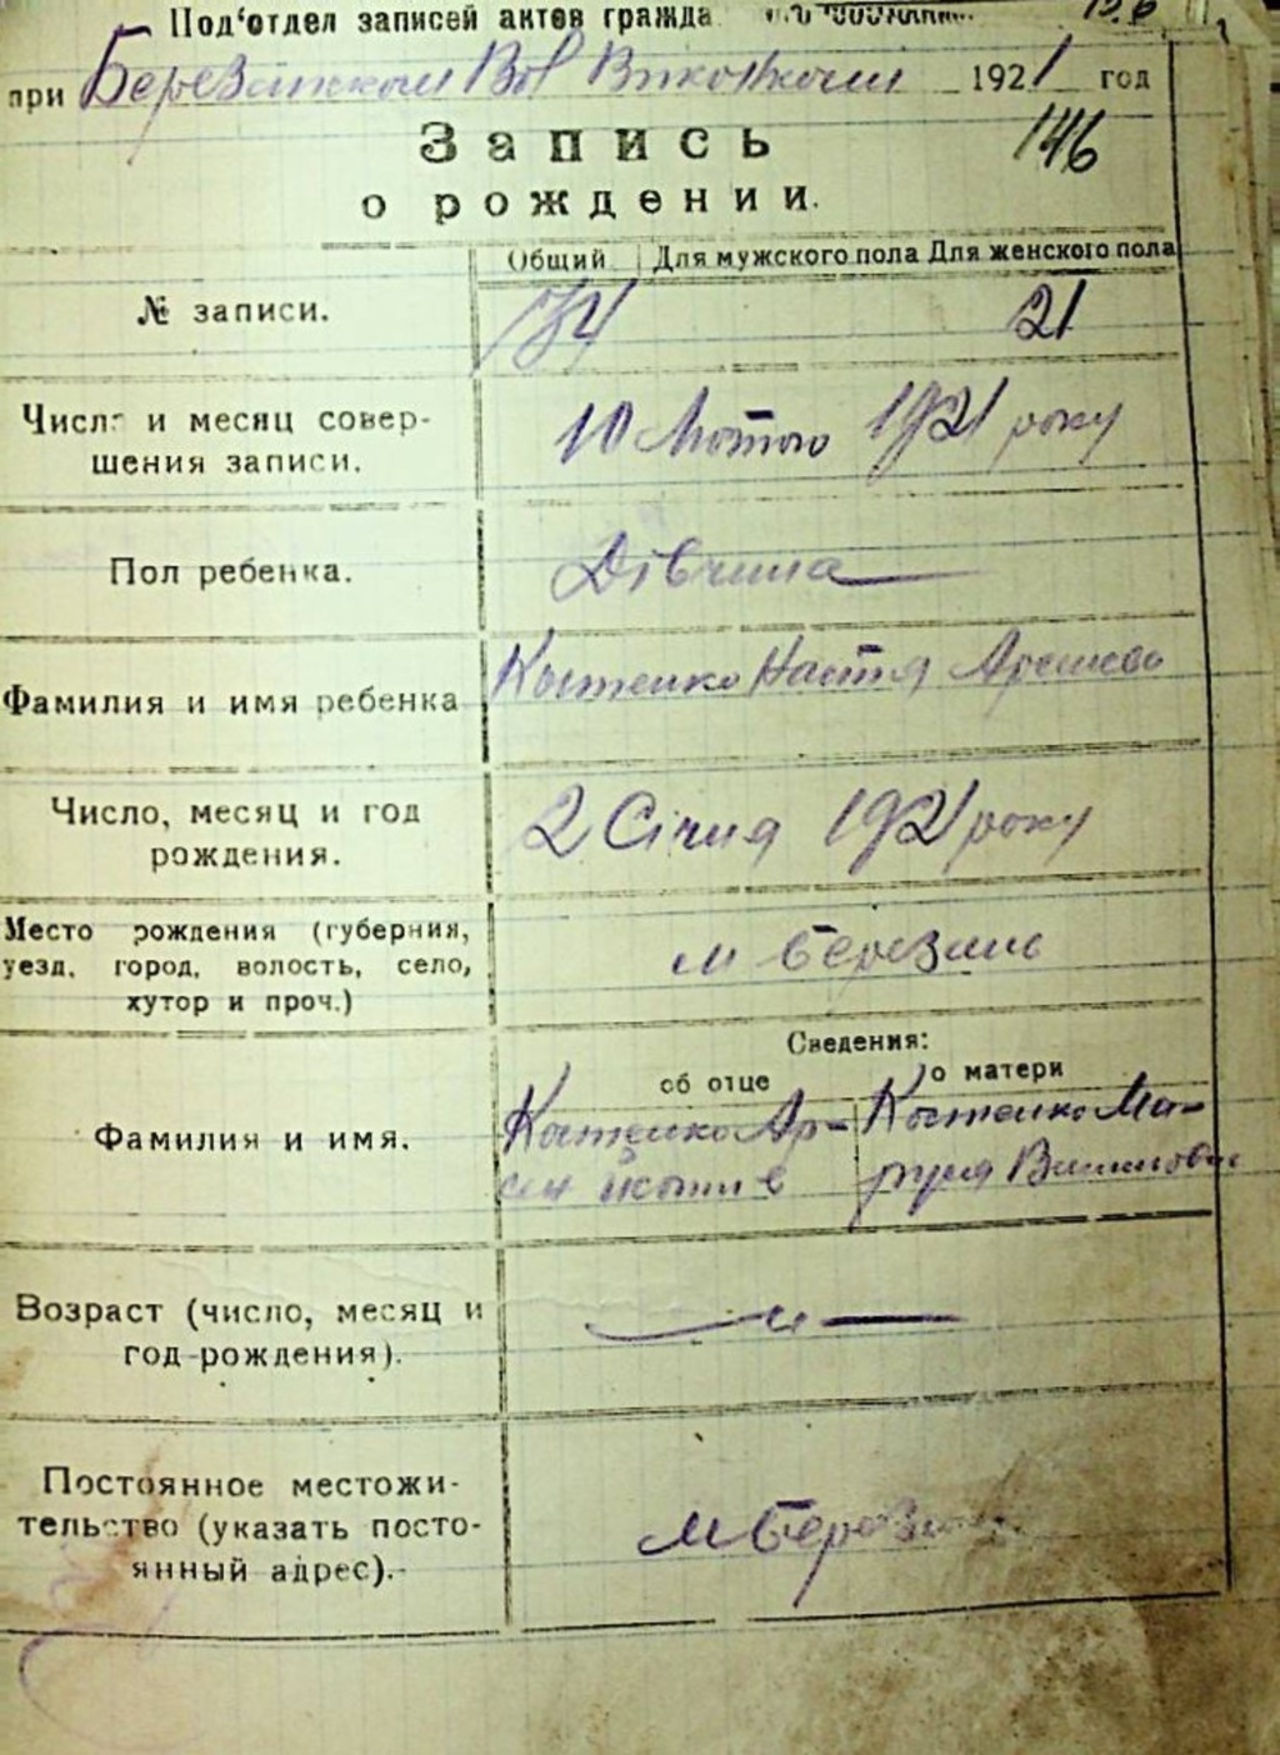 Под‘отдел записей актов гражда
при Березанском Вол Виконкоми 1921 год
146
Запись
о рождении.
Общий Для мужского пола Для женского пола
№ записи. 21
Число и месяц совер-
шения записи. 10 Лютого 1921 року
Пол ребенка. Дівчина
Фамилия и имя ребенка Костенко Настя
Число, месяц и год
рождения. 2 Січня 1921 року
Место рождения (губерния,
уезд, город, волость, село,
хутор и проч.) м Березань
Сведения:
об отце о матери
Фамилия и имя. Костенко Ар- Костенко Ма-
сен руся
Возраст (число, месяц и
год рождения).
Постоянное местожи-
тельство (указать посто-
янный адрес). м Березань